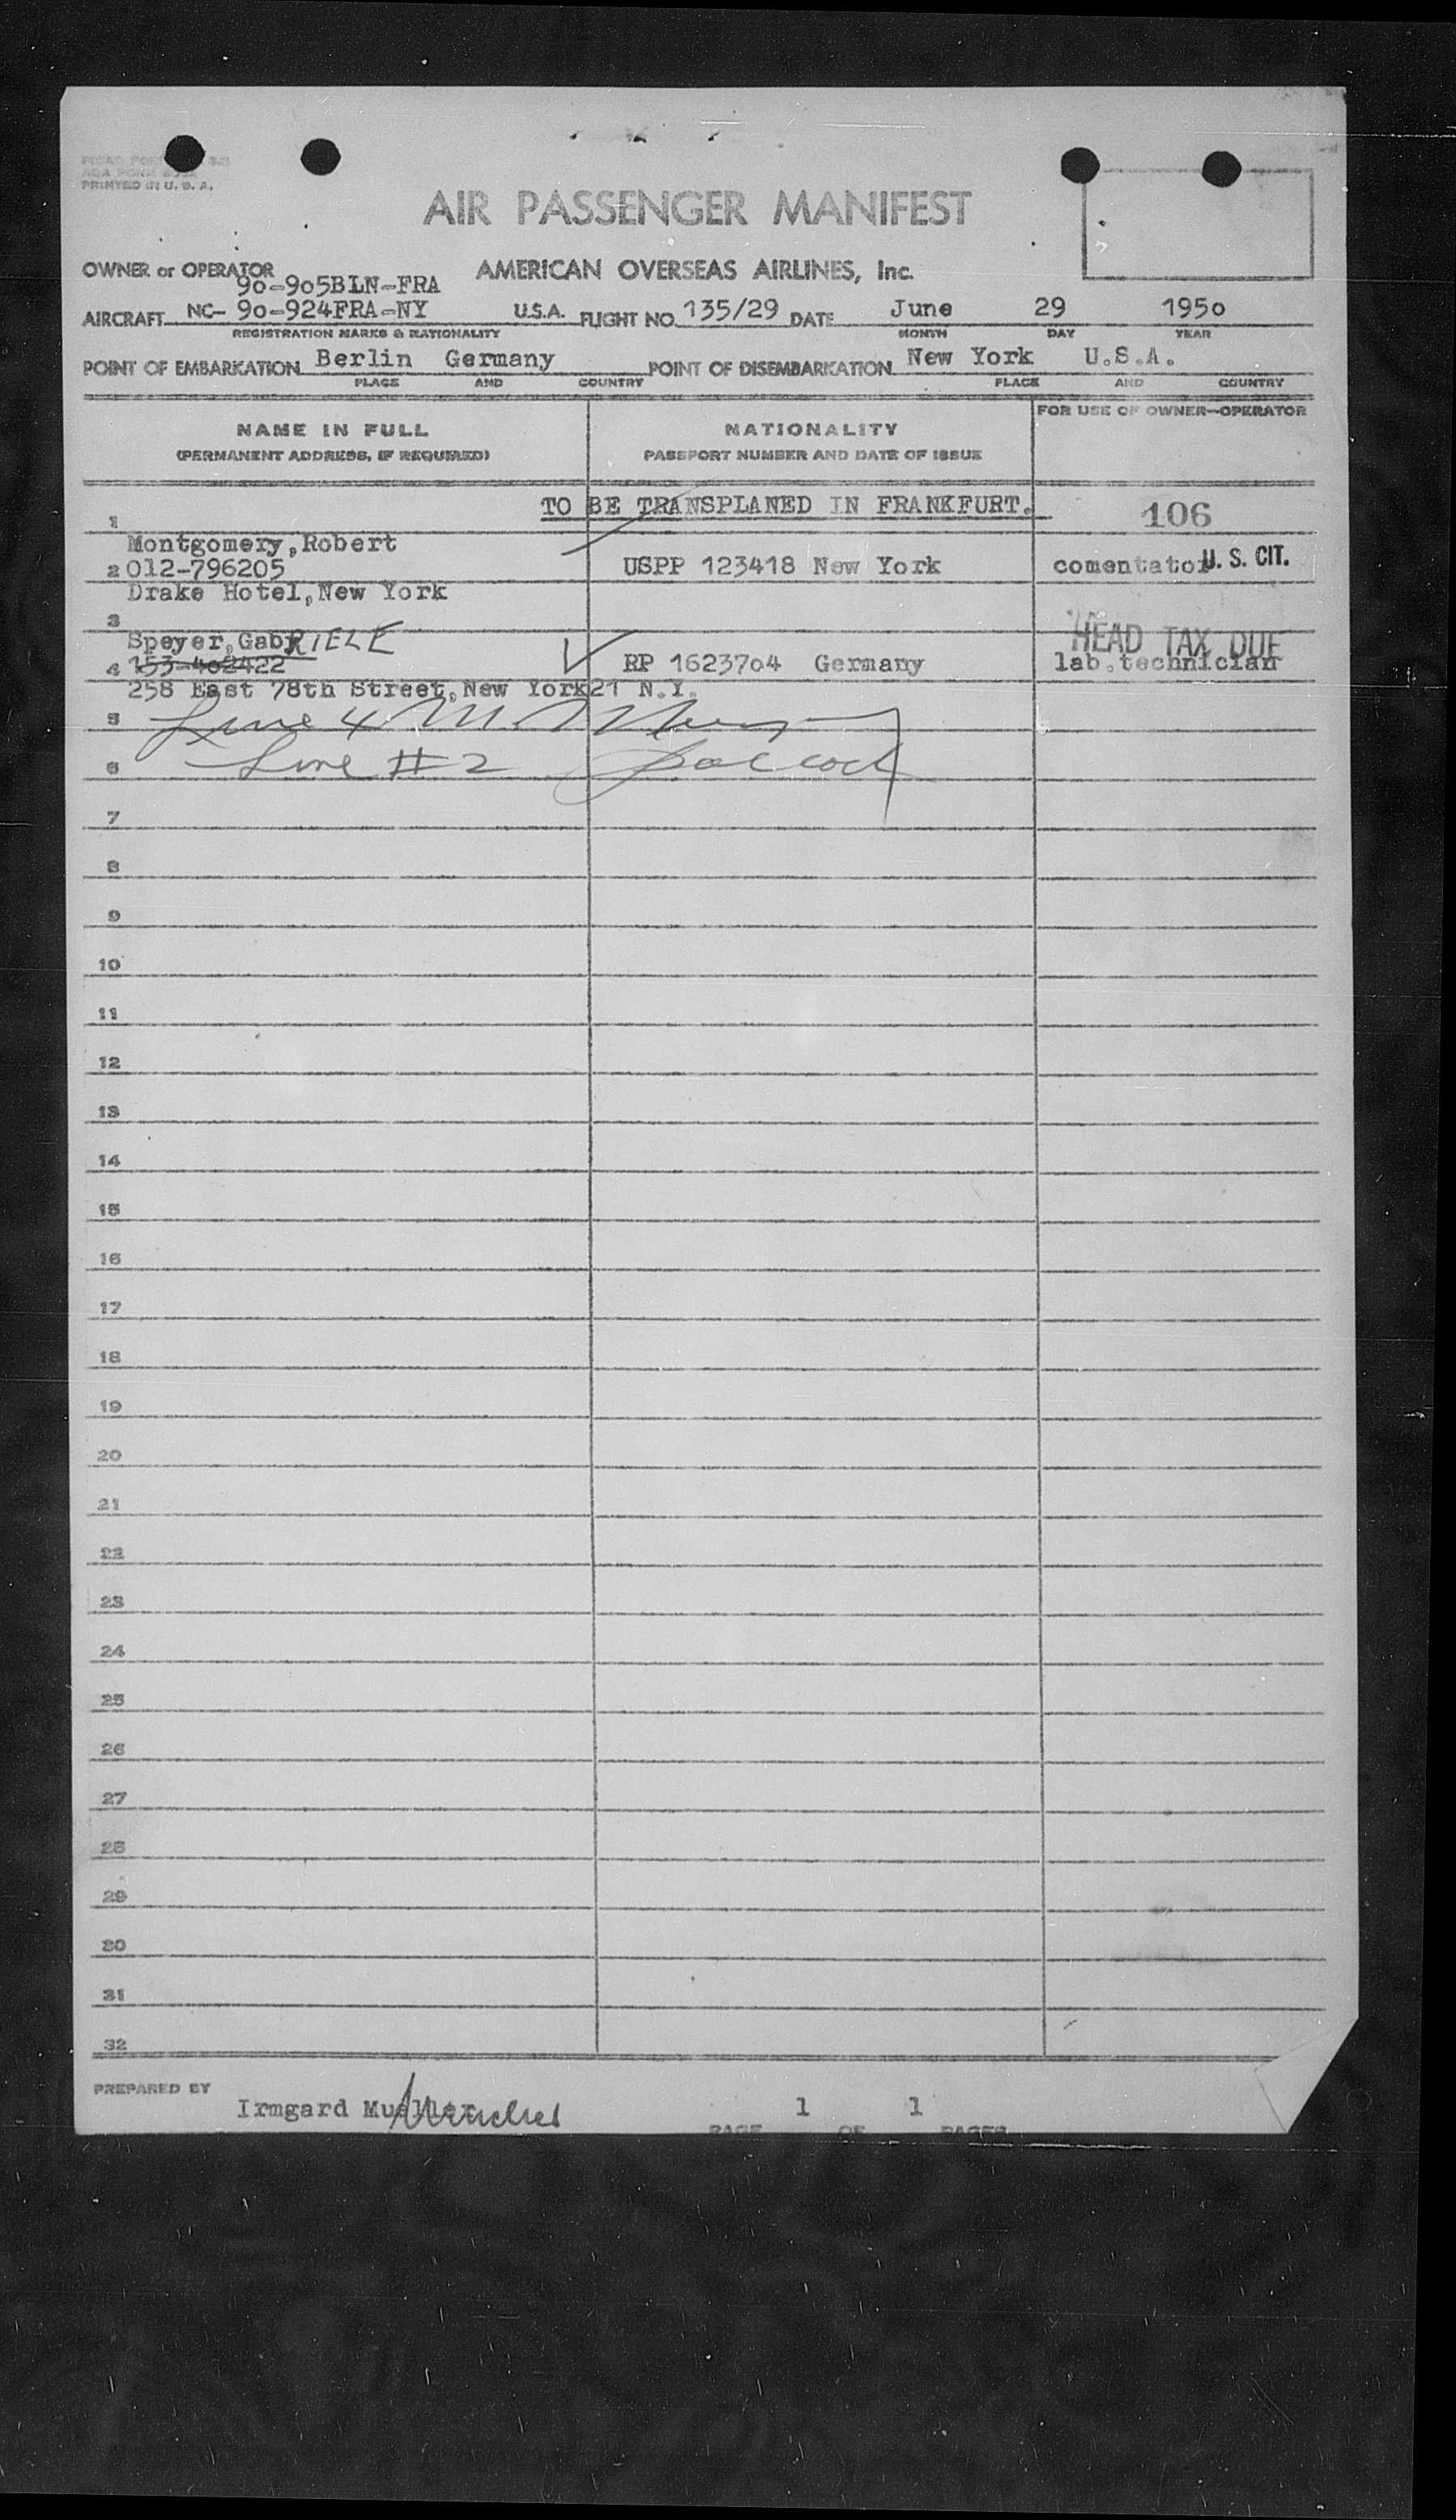 PRINTED IN U. S. A.
AIR PASSENGER MANIFEST
OWNER or OPERATOR AMERICAN OVERSEAS AIRLINES, Inc.
90-905BLN-FRA
AIRCRAFT NC- 90-924FRA-NY U.S.A. FLIGHT NO. 135/29 DATE June 29 1950
REGISTRATION MARKS & NATIONALITY MONTH DAY YEAR
POINT OF EMBARKATION Berlin Germany POINT OF DISEMBARKATION New York U.S.A.
PLACE AND COUNTRY PLACE AND COUNTRY
NAME IN FULL NATIONALITY FOR USE OF OWNER—OPERATOR
(PERMANENT ADDRESS, IF REQUIRED) PASSPORT NUMBER AND DATE OF ISSUE
TO BE TRANSPLANED IN FRANKFURT. 106
1
Montgomery,Robert
2 012-796205 USPP 123418 New York comentator U. S. CIT.
Drake Hotel,New York
3
Speyer,GabRIELE HEAD TAX DUE
4 153-402422 RP 1623704 Germany lab.technician
258 East 78th Street,New York21 N.Y.
5 Line 4 M.
6 Line #2
7
8
9
10
11
12
13
14
15
16
17
18
19
20
21
22
23
24
25
26
27
28
29
30
31
32
PREPARED BY Irmgard Mueller 1 1
PAGE OF PAGES